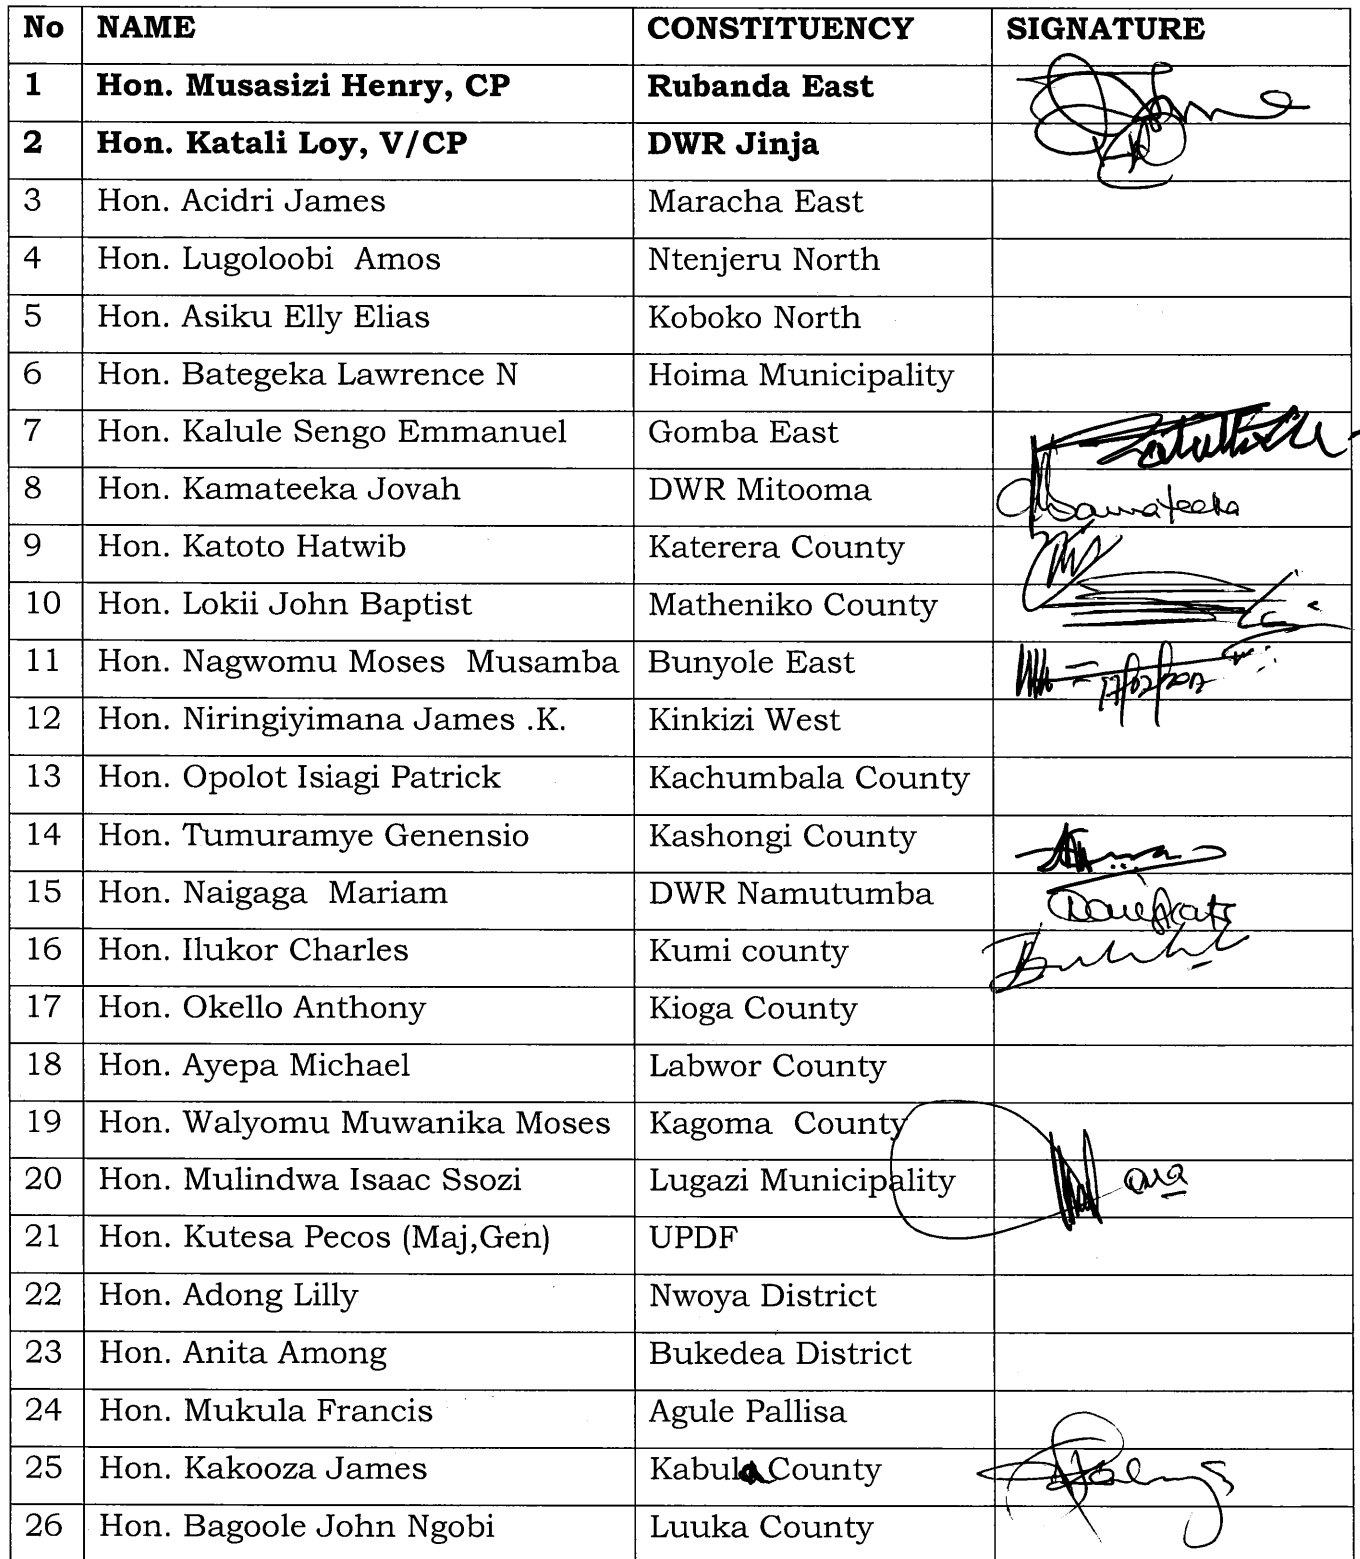 No NAME CONSTITUENCY SIGNATURE
1 Hon. Musasizi Henry, CP Rubanda East
2 Hon. Katali Loy, V/CP DWR Jinja
3 Hon. Acidri James Maracha East
4 Hon. Lugoloobi Amos Ntenjeru North
5 Hon. Asiku Elly Elias Koboko North
6 Hon. Bategeka Lawrence N Hoima Municipality
7 Hon. Kalule Sengo Emmanuel Gomba East
8 Hon. Kamateeka Jovah DWR Mitooma
9 Hon. Katoto Hatwib Katerera County
10 Hon. Lokii John Baptist Matheniko County
11 Hon. Nagwomu Moses Musamba Bunyole East
12 Hon. Niringiyimana James .K. Kinkizi West
13 Hon. Opolot Isiagi Patrick Kachumbala County
14 Hon. Tumuramye Genensio Kashongi County
15 Hon. Naigaga Mariam DWR Namutumba
16 Hon. Ilukor Charles Kumi county
17 Hon. Okello Anthony Kioga County
18 Hon. Ayepa Michael Labwor County
19 Hon. Walyomu Muwanika Moses Kagoma County
20 Hon. Mulindwa Isaac Ssozi Lugazi Municipality
21 Hon. Kutesa Pecos (Maj,Gen) UPDF
22 Hon. Adong Lilly Nwoya District
23 Hon. Anita Among Bukedea District
24 Hon. Mukula Francis Agule Pallisa
25 Hon. Kakooza James Kabula County
26 Hon. Bagoole John Ngobi Luuka County